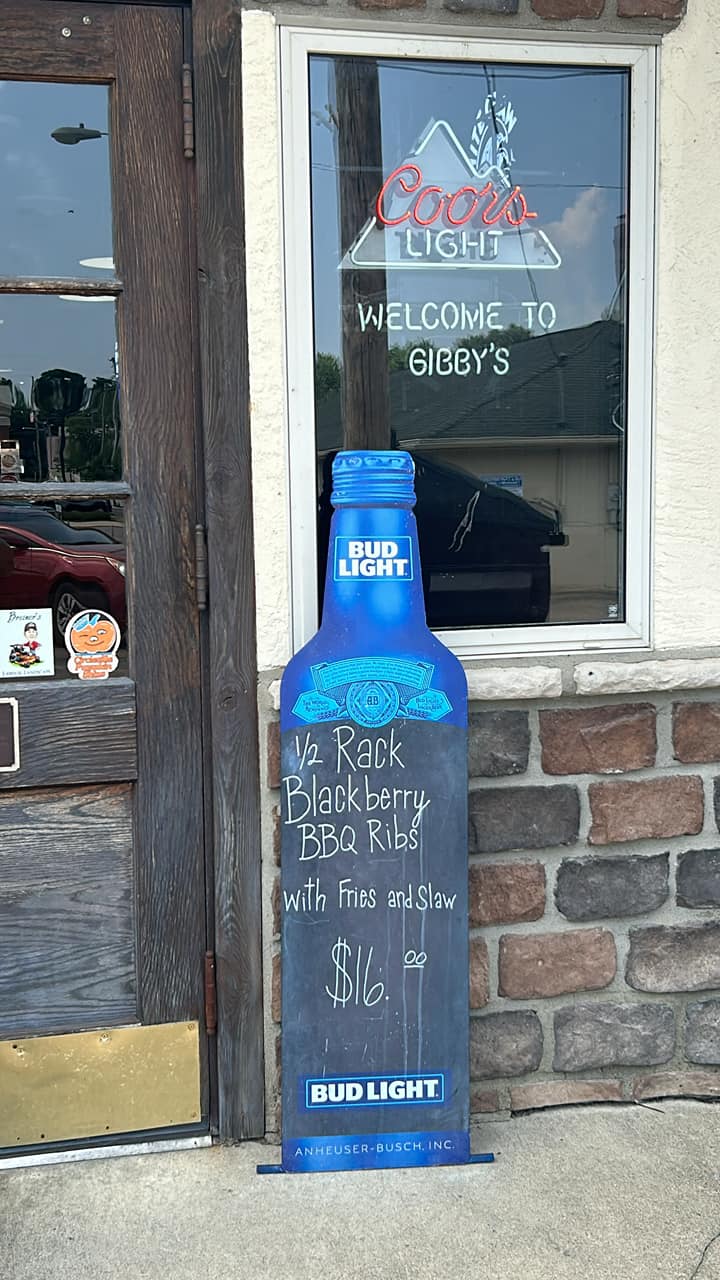 Coors
LIGHT
WELCOME TO
GIBBY'S
BUD
LIGHT
1/2 Rack
Blackberry
BBQ Ribs
with Fries and Slaw
$16.00
BUD LIGHT
ANHEUSER-BUSCH, INC.